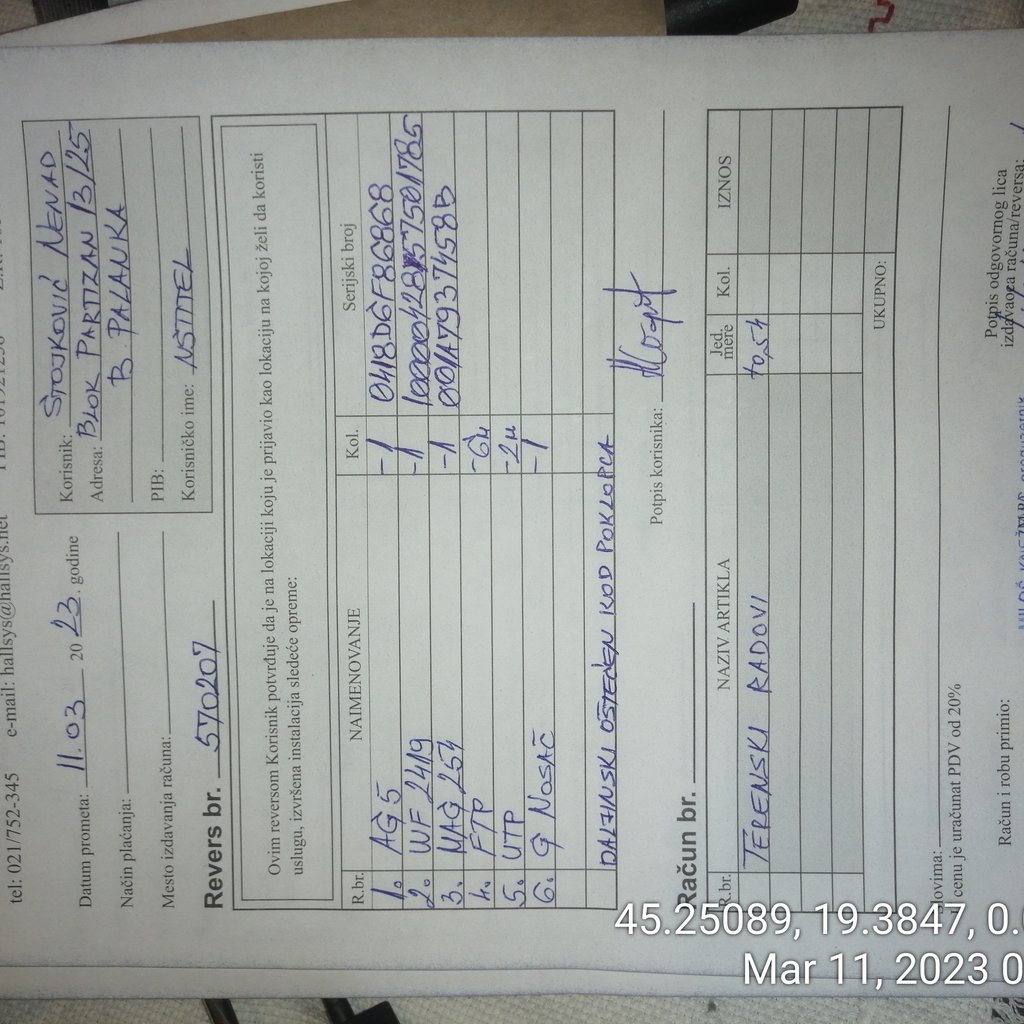 tel: 021/752-345 e-mail: hallsys@hallsys.net
Datum prometa: 11.03 2023. godine
Način plaćanja:
Mesto izdavanja računa:
Korisnik: STOJKOVIĆ NENAD
Adresa: BLOK PARTIZAN 13/25
B PALANKA
PIB:
Korisničko ime: NŠTITEL
Revers br. 570207
Ovim reversom Korisnik potvrđuje da je na lokaciji koju je prijavio kao lokaciju na kojoj želi da koristi
uslugu, izvršena instalacija sledeće opreme:
R.br. NAIMENOVANJE Kol. Serijski broj
1. AG 5 -1 0418D6F86868
2. WF 2419 -1
3. MAG 254 -1 001A7937458B
4. FTP -6m
5. UTP -2m
6. G NOSAČ -1
DALJINSKI OŠTEĆEN KOD POKLOPCA
Potpis korisnika:
Račun br.
R.br. NAZIV ARTIKLA Jed. mere Kol. IZNOS
TERENSKI RADOVI
UKUPNO:
Slovima:
U cenu je uračunat PDV od 20%
Račun i robu primio:
Potpis odgovornog lica
izdavaoca računa/reversa:
45.25089, 19.3847, 0.
Mar 11, 2023